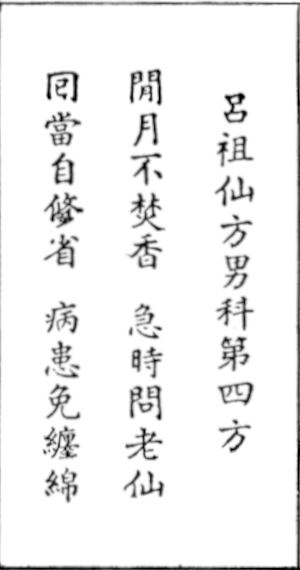 呂祖仙方男科第四方
閒月不焚香　急時問老仙
囘當自修省　病患免纏綿